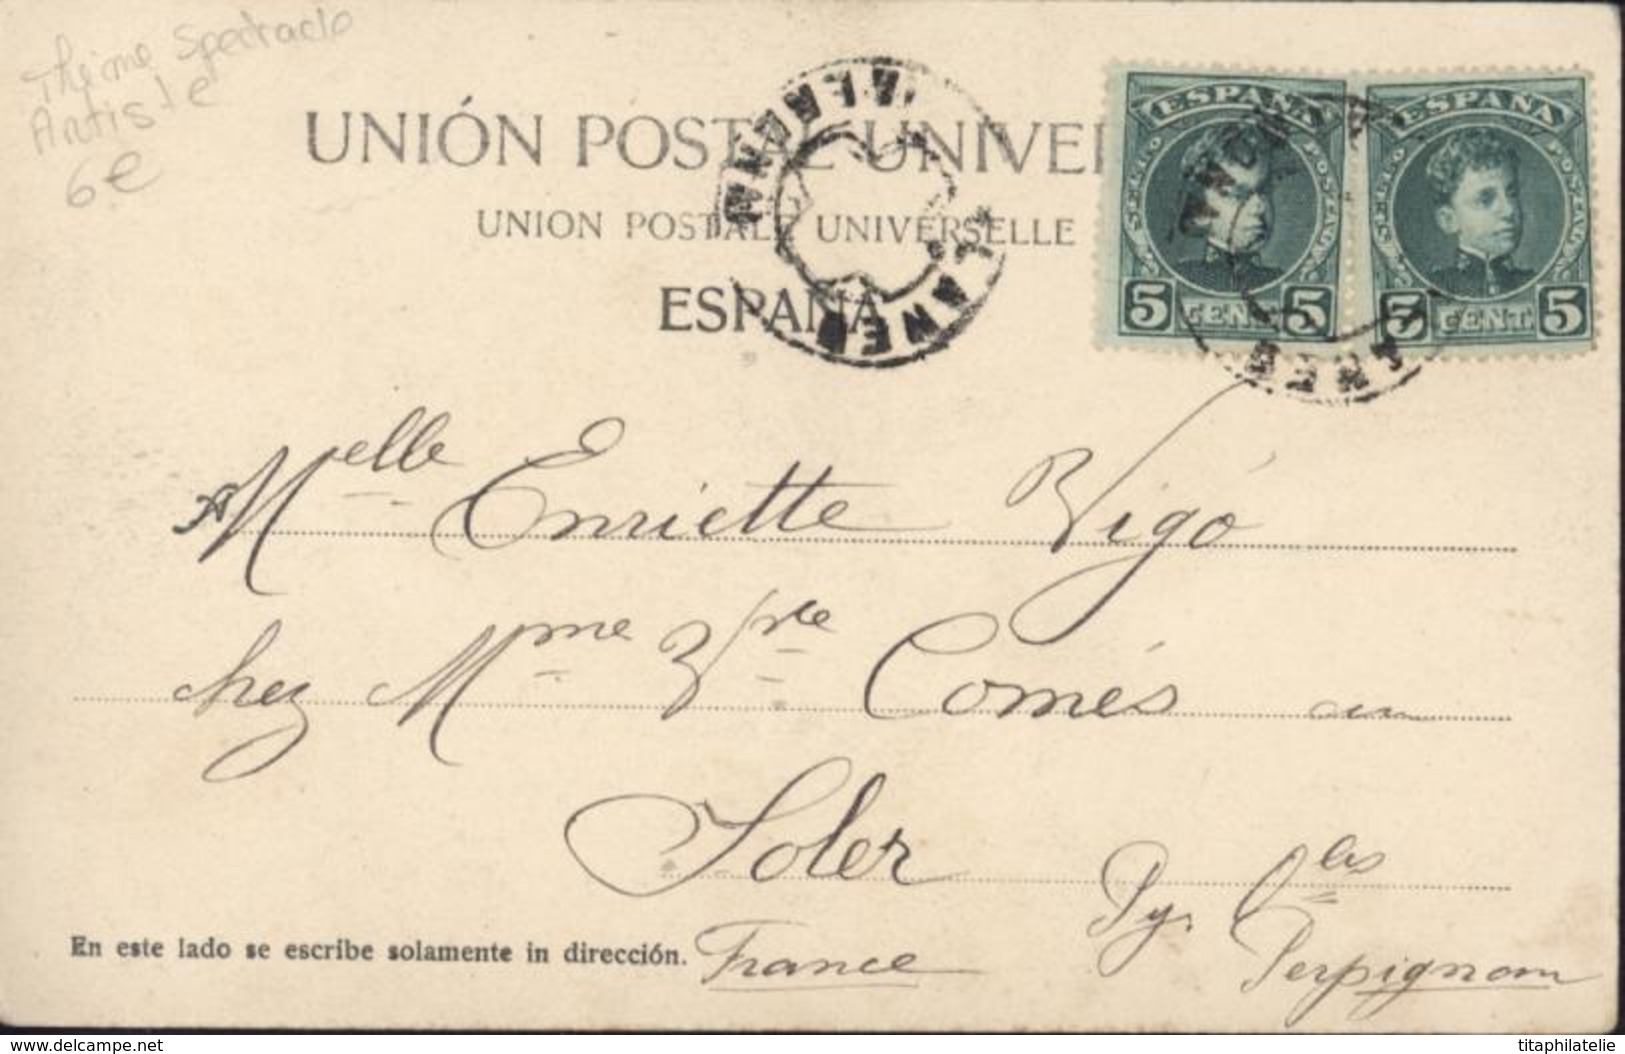 Théme Spectacle
Artiste
6€
UNIÓN POSTAL UNIVER
UNION POSTALE UNIVERSELLE
ESPAÑA
ESPAÑA
SELLO POSTAL
5 CENT. 5
ESPAÑA
SELLO POSTAL
5 CENT. 5
LLANER
A Melle Enriette Vigó
chez Mme Vve Comés en
Soler Py. Oles
En este lado se escribe solamente in dirección. France Perpignam
delcampe.net
titaphilatelie